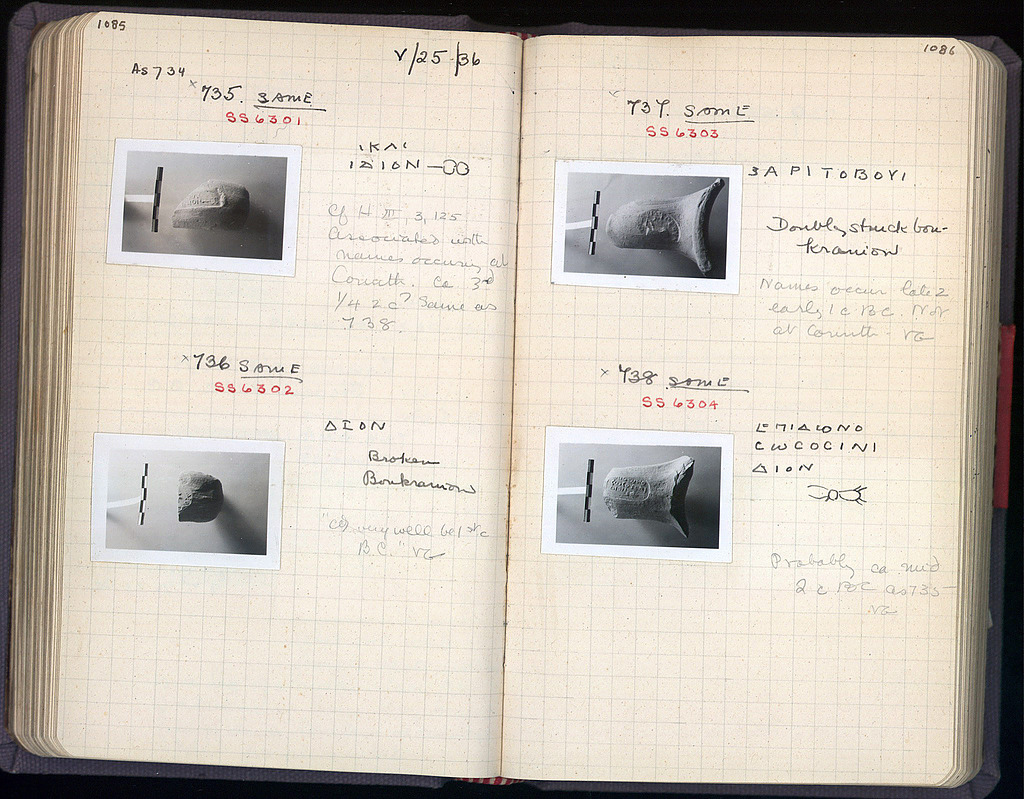 1085
V/25/36
As 734
×735. SAME
SS6301
ΙΚΑΙ
ΙΔΙΟΝ—
Cf H III 3, 125
Associated with
names occuring at
Corinth. Ca 3rd
1/4 2 c? Same as
738.
×736 SAME
SS6302
ΔΙΟΝ
Broken
Boukranion
very well be 1st c
B.C." VG
1086
737. SAME
SS6303
ΑΡΙΤΟΒΟΥΙ
Doubly struck bou-
kranion
Names occur late 2
early 1 c BC. Not
at Corinth - VG
× 738 SAME
SS6304
ΕΠΙΔΙΟΝΟ
CΩCΟCΙΝΙ
ΔΙΟΝ
Probably ca mid
2 c BC as 735
VG